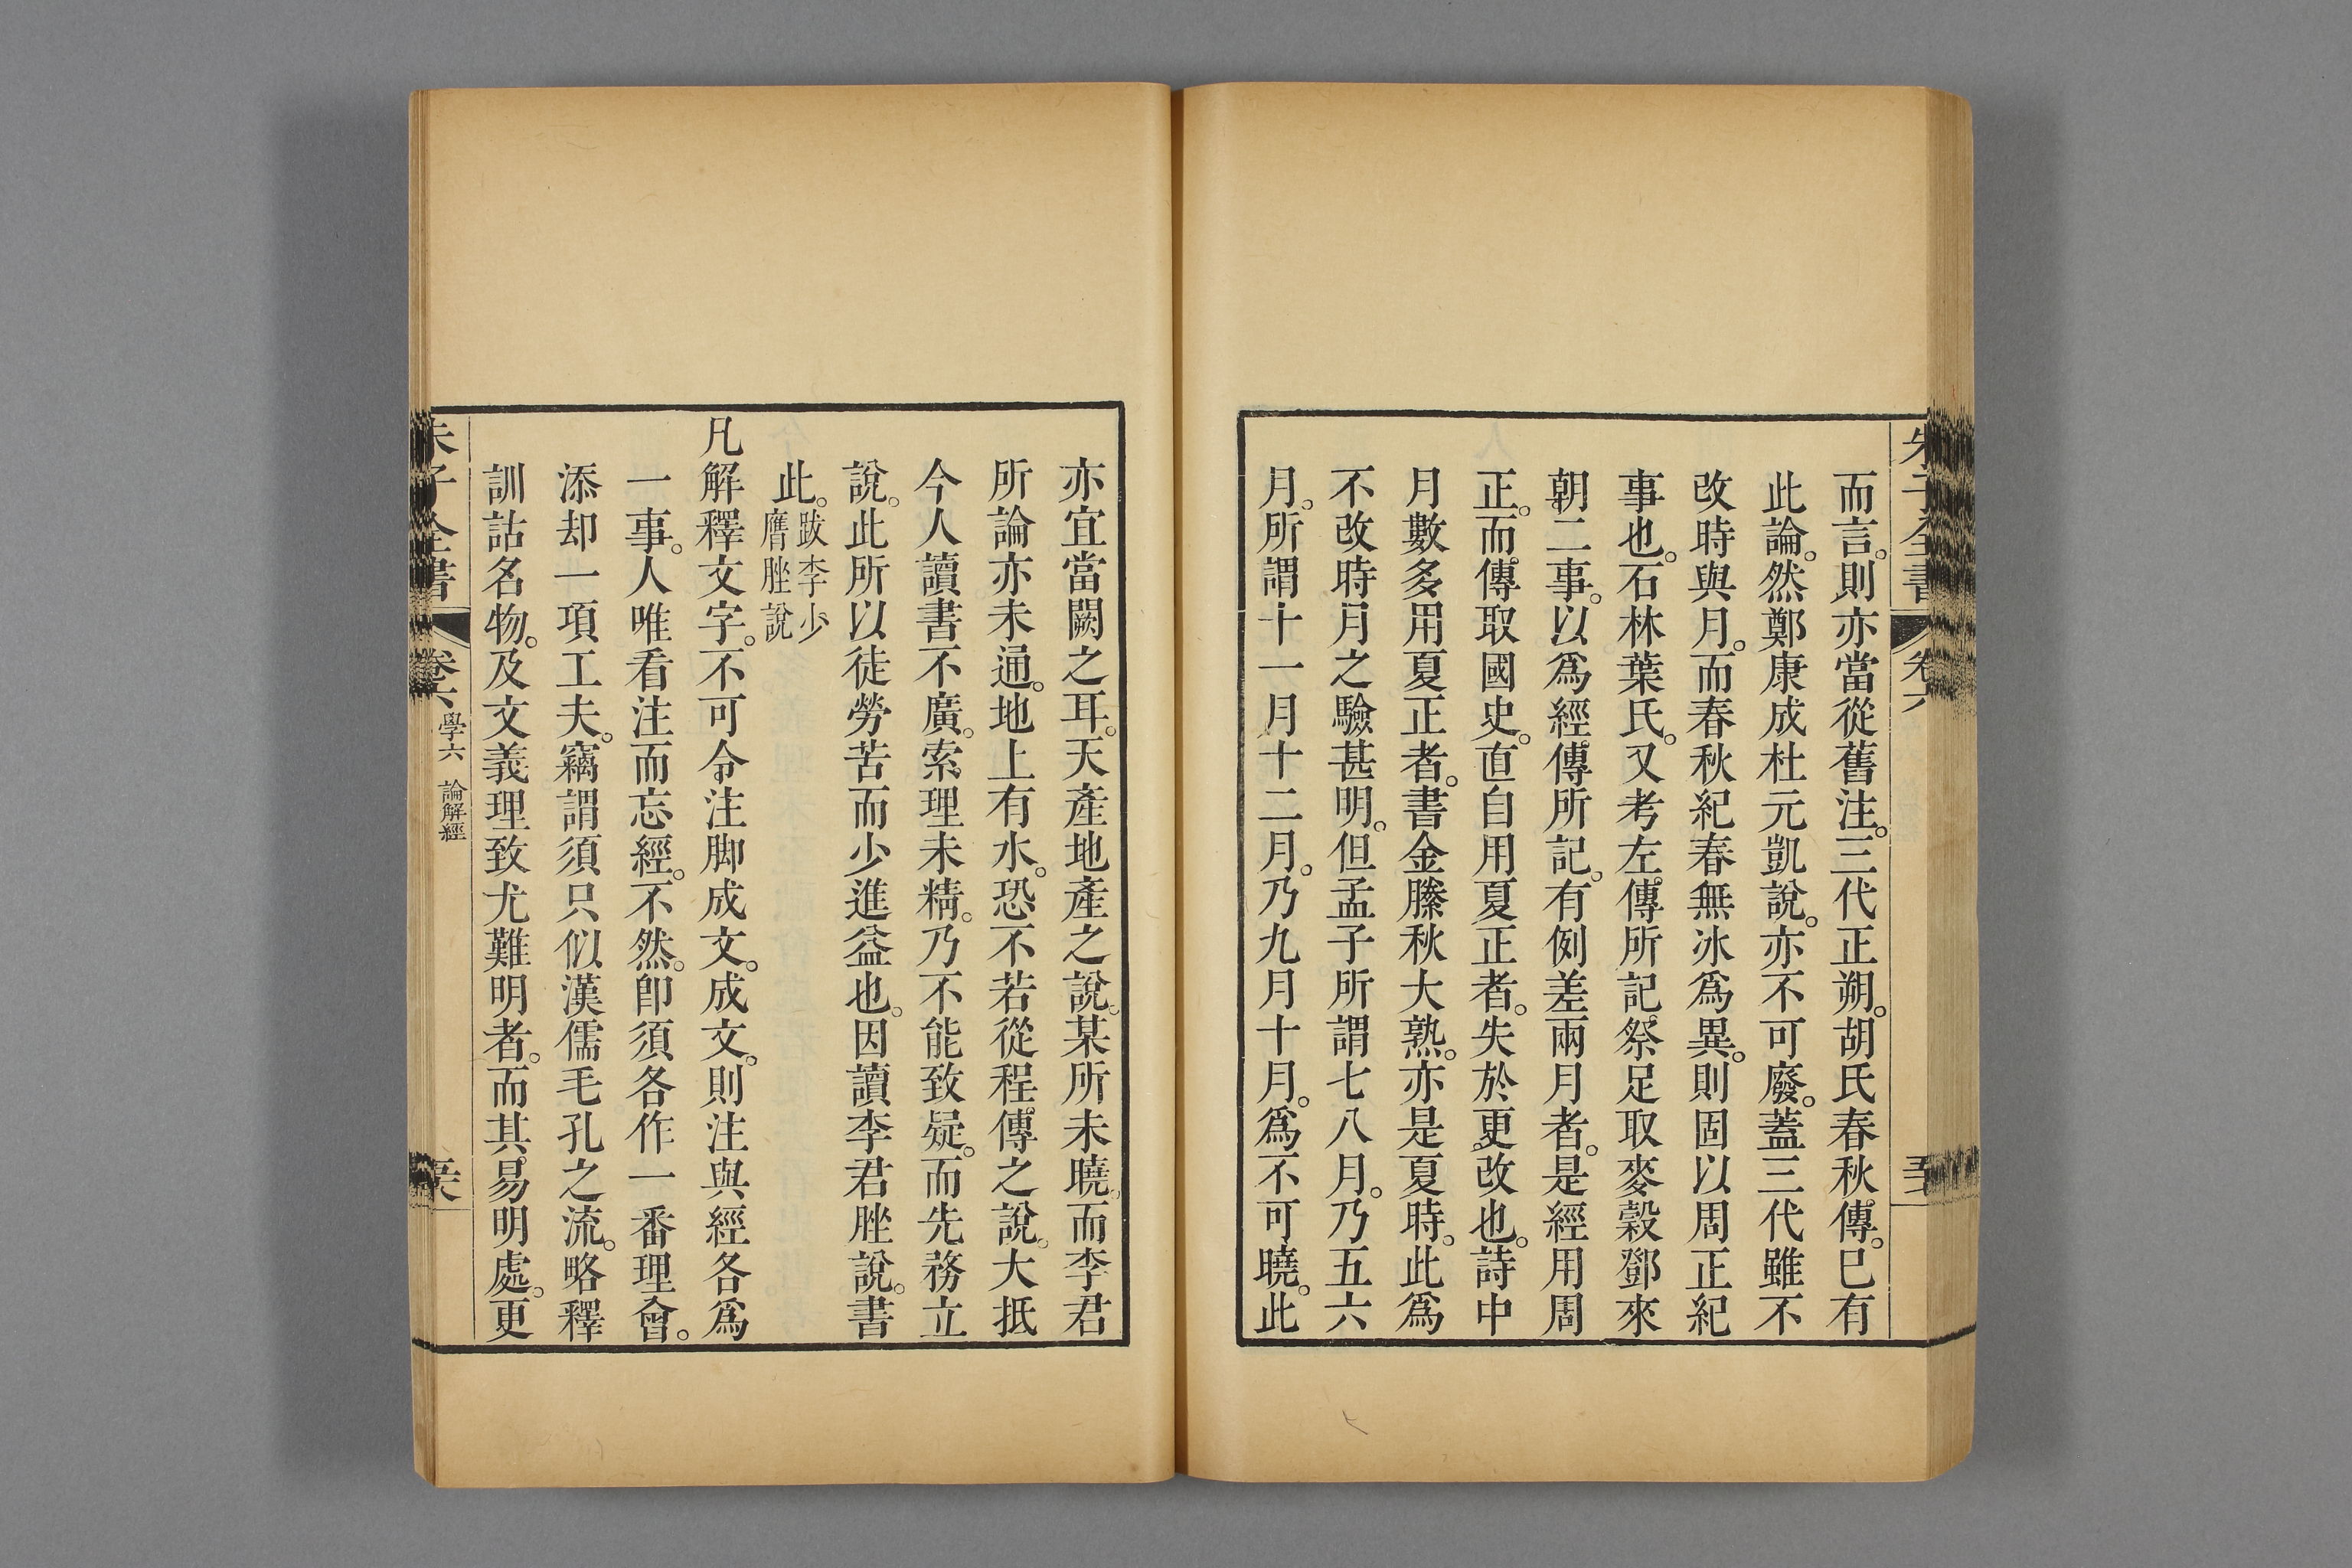 朱子全書 卷六
而言。則亦當從舊注。三代正朔。胡氏春秋傳。已有
此論。然鄭康成杜元凱說。亦不可廢。蓋三代雖不
改時與月。而春秋紀春無冰爲異。則固以周正紀
事也。石林葉氏。又考左傳所記。祭足取麥穀鄧來
朝二事。以爲經傳所記。有例差兩月者。是經用周
正。而傳取國史。直自用夏正者。失於更改也。詩中
月數多用夏正者。書金縢秋大熟。亦是夏時。此爲
不改時月之驗甚明。但孟子所謂七八月。乃五六
月。所謂十一月十二月。乃九月十月。爲不可曉。此
亦宜當闕之耳。天產地產之說。某所未曉。而李君
所論亦未通。地上有水。恐不若從程傳之說。大抵
今人讀書不廣。索理未精。乃不能致疑。而先務立
說。此所以徒勞苦而少進益也。因讀李君脞說。書
此。跋李少膺脞說
凡解釋文字。不可令注脚成文。成文。則注與經各爲
一事。人唯看注而忘經。不然。卽須各作一番理會。
添却一項工夫。竊謂須只似漢儒毛孔之流。略釋
訓詁名物。及文義理致尤難明者。而其易明處。更
朱子全書 卷六 學六 論解經